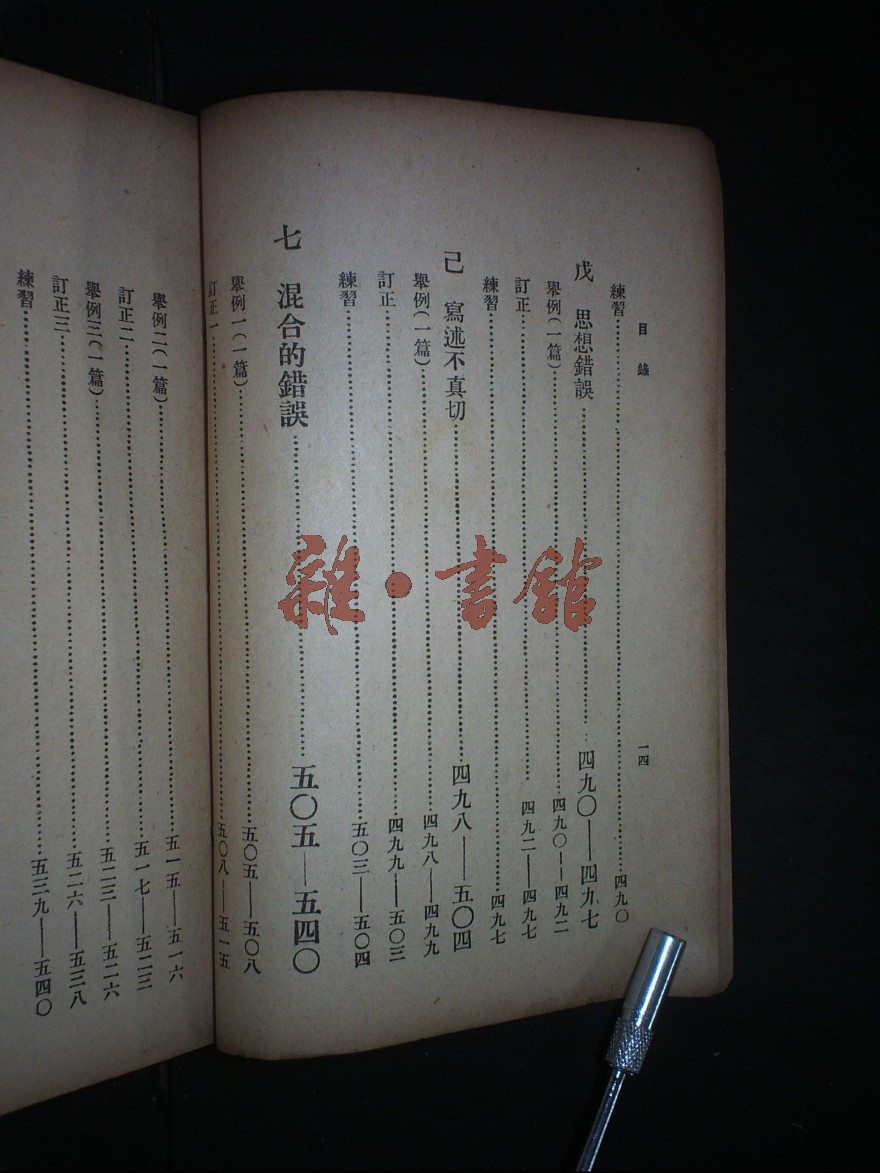 目錄
一四
練習……四九〇
戊 思想錯誤……四九〇——四九七
舉例（一篇）……四九〇——四九二
訂正……四九二——四九七
練習……四九七
己 寫述不真切……四九八——五〇四
舉例（一篇）……四九八——四九九
訂正……四九九——五〇三
練習……五〇三——五〇四
七 混合的錯誤……五〇五——五四〇
舉例一（一篇）……五〇五——五〇八
訂正一……五〇八——五一五
舉例二（一篇）……五一五——五一六
訂正二……五一七——五二三
舉例三（一篇）……五二三——五二六
訂正三……五二六——五三八
練習……五三九——五四〇
雜·書館